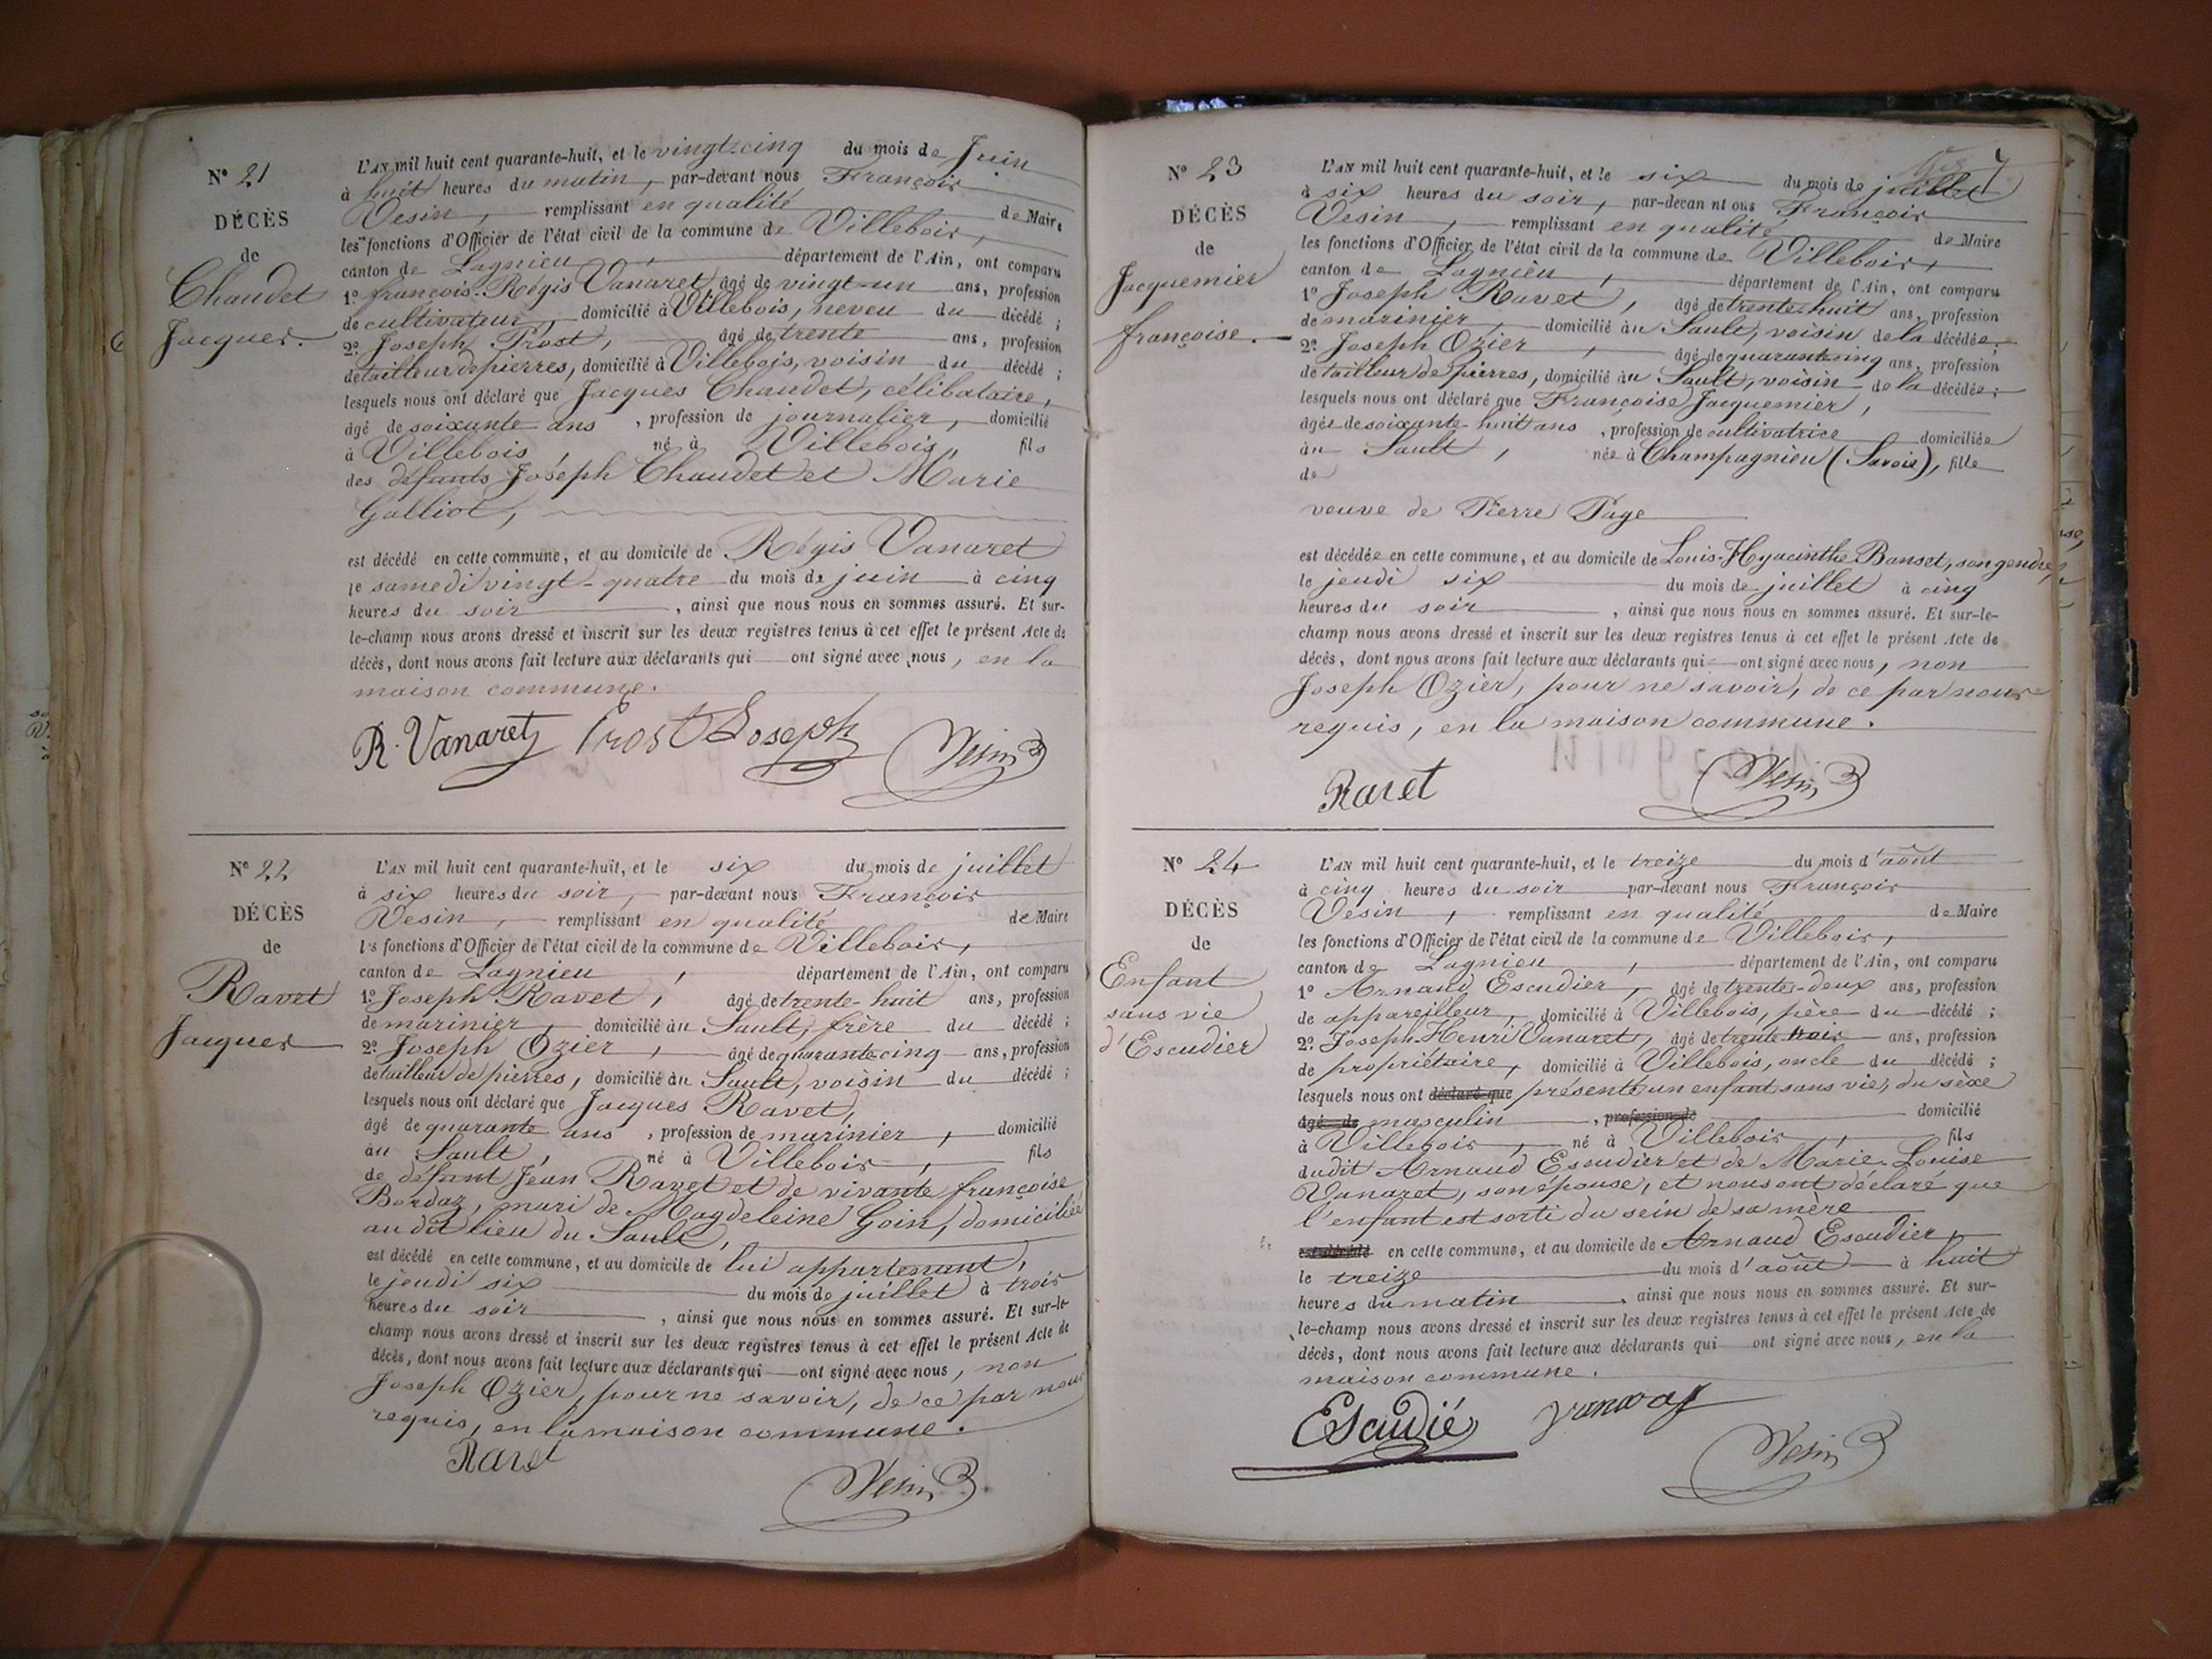 N° 21
DÉCÈS
de
Chaudet
Jacques.
L'AN mil huit cent quarante-huit, et le vingt-cinq du mois de Juin
à huit heures du matin, par-devant nous François
Vesin, remplissant en qualité de Maire
les fonctions d'Officier de l'état civil de la commune de Villebois,
canton de Lagnieu, département de l'Ain, ont comparu
1° françois-Régis Vanaret âgé de vingt-un ans, profession
de cultivateur, domicilié à Villebois, neveu du décédé ;
2° Joseph Trost, âgé de trente ans, profession
de tailleur de pierres, domicilié à Villebois, voisin du décédé ;
lesquels nous ont déclaré que Jacques Chaudet, célibataire,
âgé de soixante ans, profession de journalier, domicilié
à Villebois, né à Villebois, fils
des défunts Joseph Chaudet et Marie
Galliot,
est décédé en cette commune, et au domicile de Régis Vanaret
le samedi vingt-quatre du mois de juin à cinq
heures du soir, ainsi que nous nous en sommes assuré. Et sur-
le-champ nous avons dressé et inscrit sur les deux registres tenus à cet effet le présent Acte de
décès, dont nous avons fait lecture aux déclarants qui ont signé avec nous, en la
maison commune.
R. Vanaret Trost Joseph Vesin
N° 22
DÉCÈS
de
Ravet
Jacques
L'AN mil huit cent quarante-huit, et le six du mois de juillet
à six heures du soir, par-devant nous François
Vesin, remplissant en qualité de Maire
l's fonctions d'Officier de l'état civil de la commune de Villebois,
canton de Lagnieu, département de l'Ain, ont comparu
1° Joseph Ravet, âgé de trente-huit ans, profession
de marinier, domicilié au Sault, frère du décédé ;
2° Joseph Ozier, âgé de quarante cinq ans, profession
de tailleur de pierres, domicilié au Sault, voisin du décédé ;
lesquels nous ont déclaré que Jacques Ravet,
âgé de quarante ans, profession de marinier, domicilié
au Sault, né à Villebois, fils
de défunt Jean Ravet et de vivante françoise
Bordaz, mari de Magdeleine Goin, domiciliée
au dit lieu du Sault,
est décédé en cette commune, et au domicile de lui appartenant,
le jeudi six du mois de juillet à trois
heures du soir, ainsi que nous nous en sommes assuré. Et sur-le-
champ nous avons dressé et inscrit sur les deux registres tenus à cet effet le présent Acte de
décès, dont nous avons fait lecture aux déclarants qui ont signé avec nous, non
Joseph Ozier, pour ne savoir, de ce par nous
requis, en la maison commune.
Ravet
Vesin
N° 23
DÉCÈS
de
Jacquemier
françoise.
L'AN mil huit cent quarante-huit, et le six du mois de juillet
à six heures du soir, par-devan nt ous François
Vesin, remplissant en qualité de Maire
les fonctions d'Officier de l'état civil de la commune de Villebois,
canton de Lagnieu, département de l'Ain, ont comparu
1° Joseph Ravet, âgé de trente-huit ans, profession
de marinier, domicilié au Sault, voisin de la décédée ;
2° Joseph Ozier, âgé de quarante cinq ans, profession
de tailleur de pierres, domicilié au Sault, voisin de la décédée ;
lesquels nous ont déclaré que Françoise Jacquemier,
âgée de soixante-huit ans, profession de cultivatrice domiciliée
au Sault, née à Champagnieu (Savoie), fille
de
veuve de Pierre Page
est décédée en cette commune, et au domicile de Louis-Hyacinthe Banset, son gendre,
le jeudi six du mois de juillet à cinq
heures du soir, ainsi que nous nous en sommes assuré. Et sur-le-
champ nous avons dressé et inscrit sur les deux registres tenus à cet effet le présent Acte de
décès, dont nous avons fait lecture aux déclarants qui ont signé avec nous, non
Joseph Ozier, pour ne savoir, de ce par nous
requis, en la maison commune.
Ravet Vesin
N° 24
DÉCÈS
de
Enfant
sans vie
d'Escudier
L'AN mil huit cent quarante-huit, et le treize du mois d'août
à cinq heures du soir par-devant nous François
Vesin, remplissant en qualité de Maire
les fonctions d'Officier de l'état civil de la commune de Villebois,
canton de Lagnieu, département de l'Ain, ont comparu
1° Arnaud Escudier, âgé de trente-deux ans, profession
de appareilleur, domicilié à Villebois, père du décédé ;
2° Joseph-Henri Vanaret, âgé de trente trois ans, profession
de propriétaire, domicilié à Villebois, oncle du décédé ;
lesquels nous ont déclaré que présenté un enfant sans vie, du sèxe
âgé de masculin, profession de domicilié
à Villebois, né à Villebois, fils
dudit Arnaud Escudier et de Marie-Louise
Vanaret, son épouse, et nous ont déclaré que
l'enfant est sorti du sein de sa mère
est décédé en cette commune, et au domicile de Arnaud Escudier,
le treize du mois d'août à huit
heures du matin, ainsi que nous nous en sommes assuré. Et sur-
le-champ nous avons dressé et inscrit sur les deux registres tenus à cet effet le présent Acte de
décès, dont nous avons fait lecture aux déclarants qui ont signé avec nous, en la
maison commune.
Escudié
Vesin